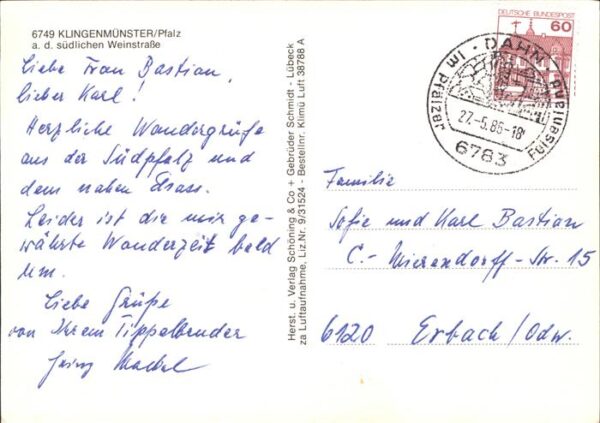 6749 KLINGENMÜNSTER/Pfalz
a. d. südlichen Weinstraße
Liebe Frau Bastian,
lieber Karl!
Herzliche Wandergrüße
aus der Südpfalz und
dem nahen Elsass.
Leider ist die mir ge-
währte Wanderzeit bald
um.
Liebe Grüße
von Ihrem Tippelbruder
Herst. u. Verlag Schöning & Co + Gebrüder Schmidt - Lübeck
za Luftaufnahme, Liz.Nr. 9/31524 - Bestellnr. Klimü Luft 38788 A
DEUTSCHE BUNDESPOST
60
DAHN
Im Pfälzer Felsenland
27.-5.86-18
6783
Familie
Sofie und Karl Bastian
C.-Mierendorff-Str. 15
6120 Erbach/Odw.